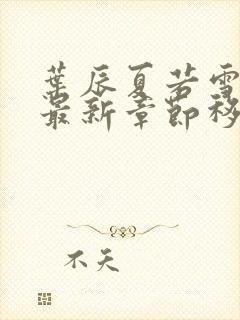 葉辰夏若雪
最新章節移
不天